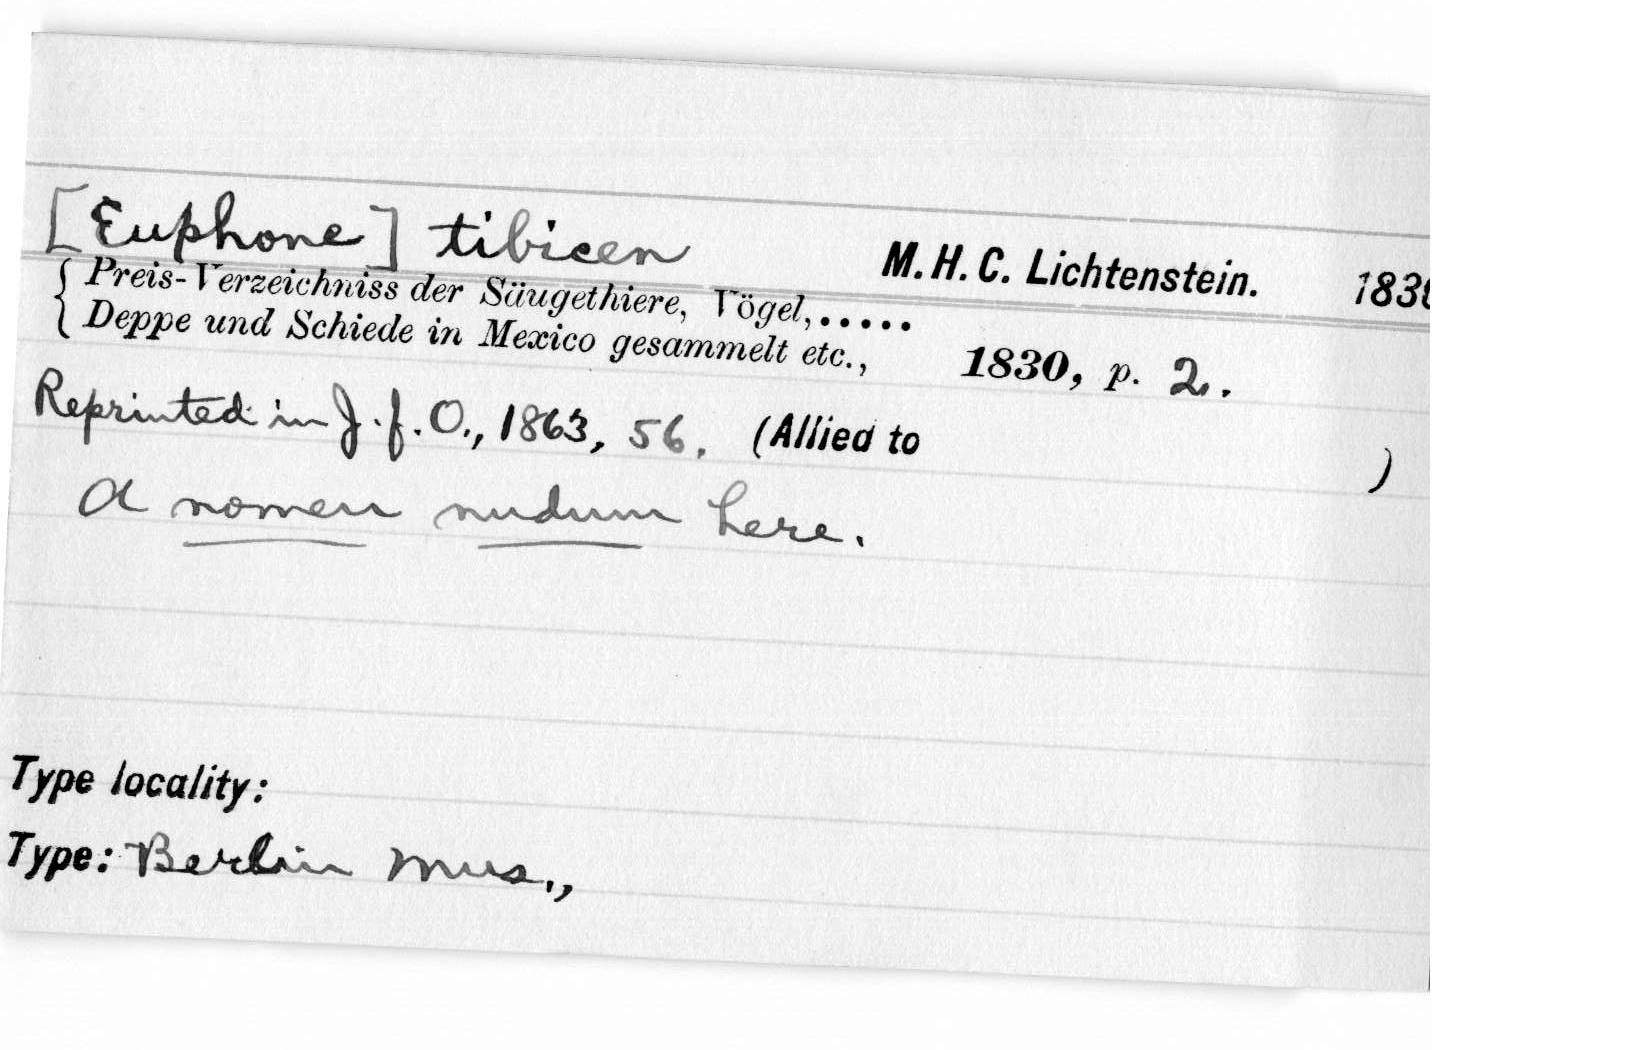 [Euphone] tibicen M. H. C. Lichtenstein. 1830
{ Preis-Verzeichniss der Säugethiere, Vögel, .....
{ Deppe und Schiede in Mexico gesammelt etc., 1830, p. 2.
Reprinted in J. f. O., 1863, 56. (Allied to )
A nomen nudum here.
Type locality:
Type: Berlin Mus.,